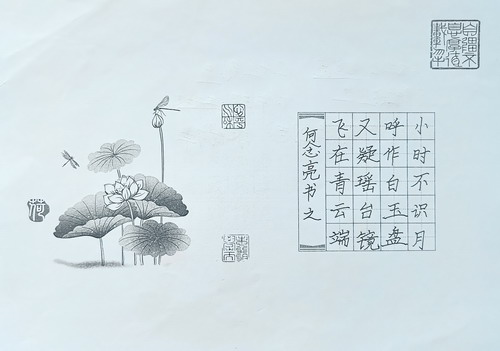 小时不识月
呼作白玉盘
又疑瑶台镜
飞在青云端
何念亮书之
荷